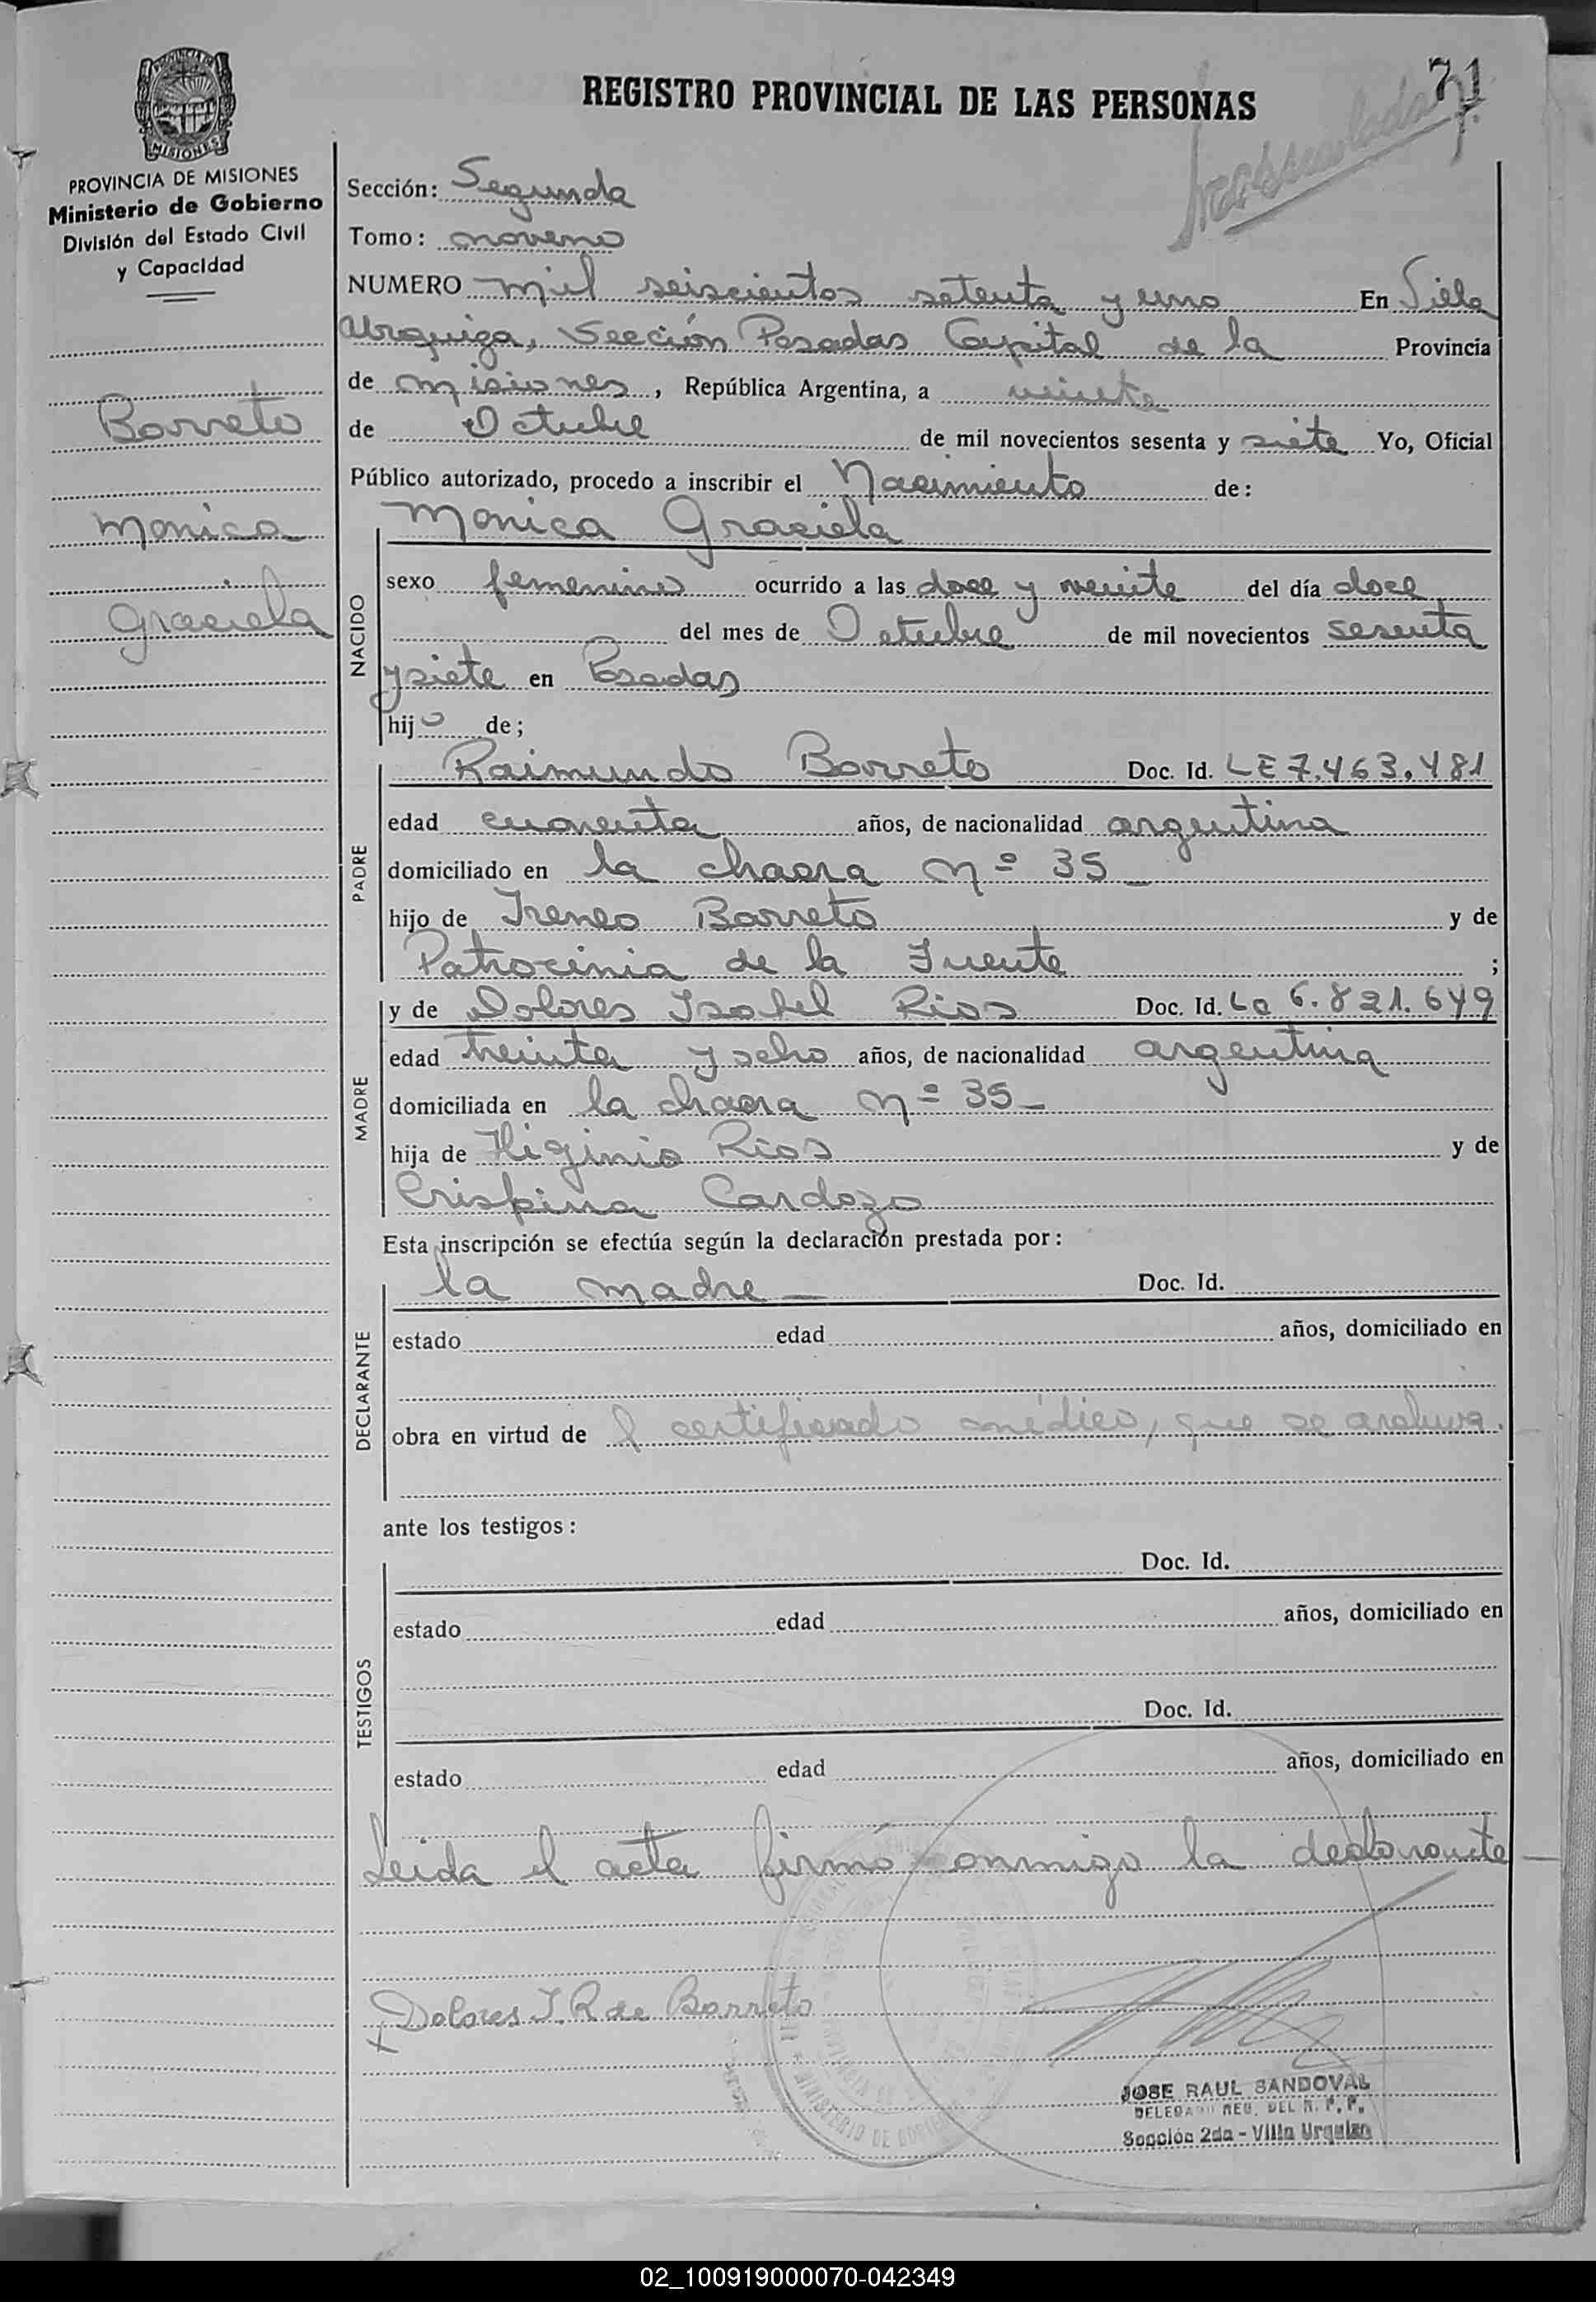 71
REGISTRO PROVINCIAL DE LAS PERSONAS
MISIONES
PROVINCIA DE MISIONES
Ministerio de Gobierno
División del Estado Civil
y Capacidad
Barreto
Monica
Graciela
Sección: Segunda
Tomo: noveno
NUMERO mil seiscientos setenta y uno En Villa
Urquiza, Sección Posadas Capital de la Provincia
de misiones, República Argentina, a veinte
de Octubre de mil novecientos sesenta y siete Yo, Oficial
Público autorizado, procedo a inscribir el Nacimiento de:
NACIDO
Monica Graciela
sexo femenino ocurrido a las doce y veinte del día doce
del mes de Octubre de mil novecientos sesenta
y siete en Posadas
hijo de;
PADRE
Raimundo Barreto Doc. Id. LE 7.463.481
edad cuarenta años, de nacionalidad argentina
domiciliado en la chacra nº 35
hijo de Ireneo Barreto y de
Patrocinia de la Fuente ;
MADRE
y de Dolores Isabel Rios Doc. Id. Lc 6.821.649
edad treinta y ocho años, de nacionalidad argentina
domiciliada en la chacra nº 35
hija de Higinio Rios y de
Crispina Cardozo
Esta inscripción se efectúa según la declaración prestada por:
DECLARANTE
la madre Doc. Id.
estado edad años, domiciliado en
obra en virtud de l certificado médico, que se archiva.
ante los testigos:
TESTIGOS
Doc. Id.
estado edad años, domiciliado en
Doc. Id.
estado edad años, domiciliado en
Leida el acta firmó conmigo la declarante
Dolores I. R de Barreto
MINISTERIO DE GOBIERNO
JOSE RAUL SANDOVAL
DELEGADO REG. DEL R. P. P.
Sección 2da - Villa Urquiza
02_100919000070-042349